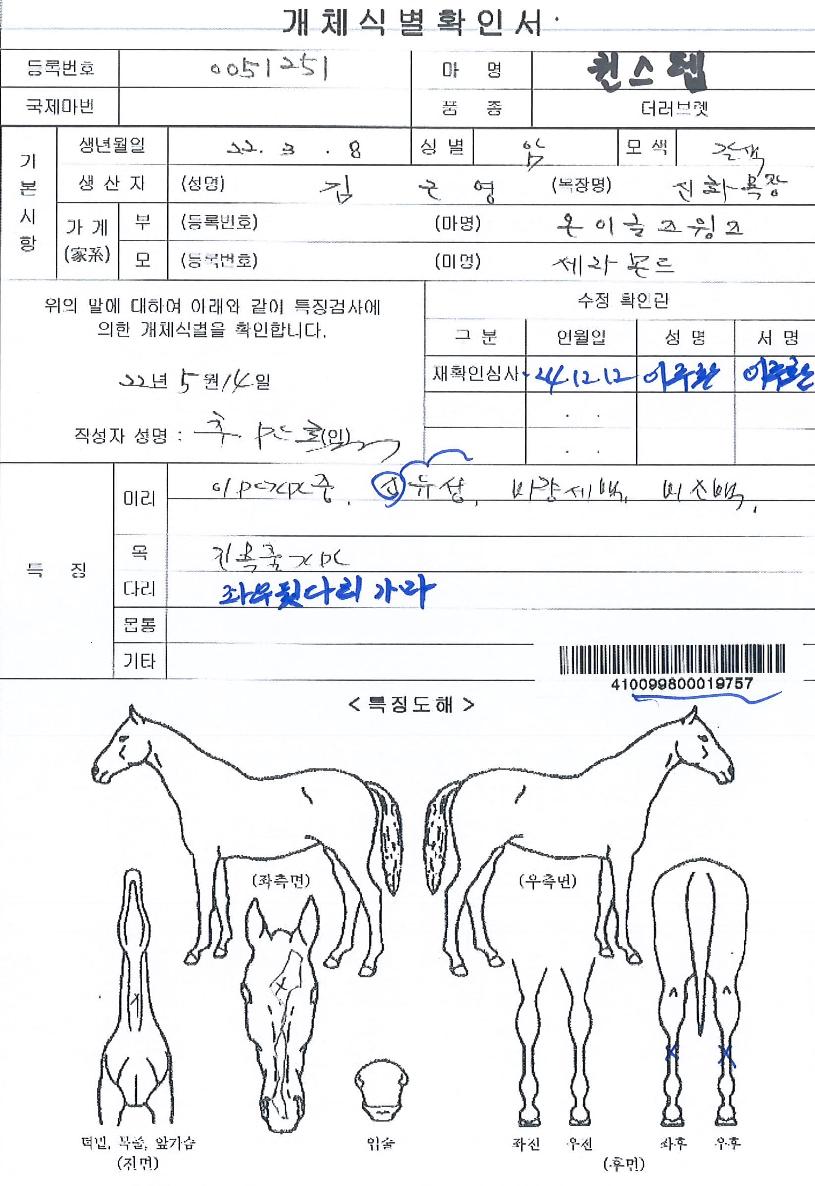 개체식별확인서
등록번호 0051251 마 명 퀸스텝
국제마번 품 종 더러브렛
기본사항
생년월일 22. 3 . 8 성 별 암 모 색 갈색
생 산 자 (성명) 김 근 영 (목장명) 진화목장
가 계 (家系)
부 (등록번호) (마명) 온이글즈윙즈
모 (등록번호) (마명) 세라몬드
위의 말에 대하여 아래와 같이 특징검사에
의한 개체식별을 확인합니다.
22년 5월 14일
작성자 성명 : (인)
수정 확인란
구 분 연월일 성 명 서 명
재확인심사 24.12.12
. .
. .
특 징
머리 유성, 비량세백, 비선백,
목
다리 좌우뒷다리 가마
몸통
기타
410099800019757
< 특징도해 >
(좌측면) (우측면)
턱밑, 목줄, 앞가슴
(전면)
입술
좌전 우전 좌후 우후
(후면)